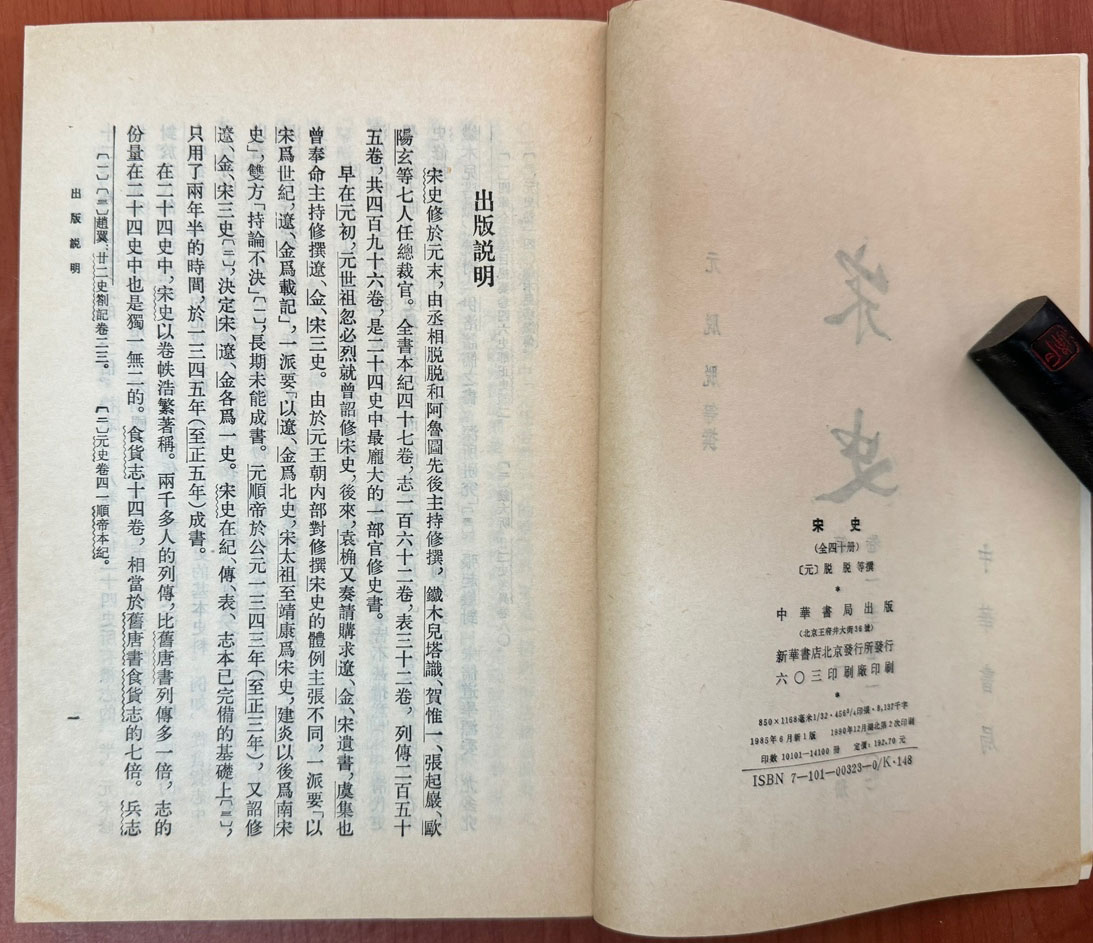 宋史
(全四十册)
〔元〕脱脱等撰
*
中華書局出版
(北京王府井大街36號)
新華書店北京發行所發行
六〇三印刷廠印刷
*
850×1168毫米1/32·456³/₄印張·8,137千字
1985年6月新1版 1990年12月湖北第2次印刷
印數 10101—14100 册 定價:192.70 元
ISBN 7—101—00323—0/K·148
出版説明
宋史修於元末,由丞相脱脱和阿魯圖先後主持修撰,鐵木兒塔識、賀惟一、張起巖、歐
陽玄等七人任總裁官。全書本紀四十七卷,志一百六十二卷,表三十二卷,列傳二百五十
五卷,共四百九十六卷,是二十四史中最龐大的一部官修史書。
早在元初,元世祖忽必烈就曾詔修宋史,後來,袁桷又奏請購求遼、金、宋遺書,虞集也
曾奉命主持修撰遼、金、宋三史。由於元王朝内部對修撰宋史的體例主張不同,一派要「以
宋爲世紀,遼、金爲載記」,一派要「以遼、金爲北史,宋太祖至靖康爲宋史,建炎以後爲南宋
史」,雙方「持論不決」〔一〕,長期未能成書。元順帝於公元一三四三年(至正三年),又詔修
遼、金、宋三史〔二〕,決定宋、遼、金各爲一史。宋史在紀、傳、表、志本已完備的基礎上〔三〕,
只用了兩年半的時間,於一三四五年(至正五年)成書。
在二十四史中,宋史以卷帙浩繁著稱。兩千多人的列傳,比舊唐書列傳多一倍,志的
份量在二十四史中也是獨一無二的。食貨志十四卷,相當於舊唐書食貨志的七倍。兵志
〔一〕〔三〕趙翼:廿二史劄記卷二三。 〔二〕元史卷四一順帝本紀。
出版説明
一